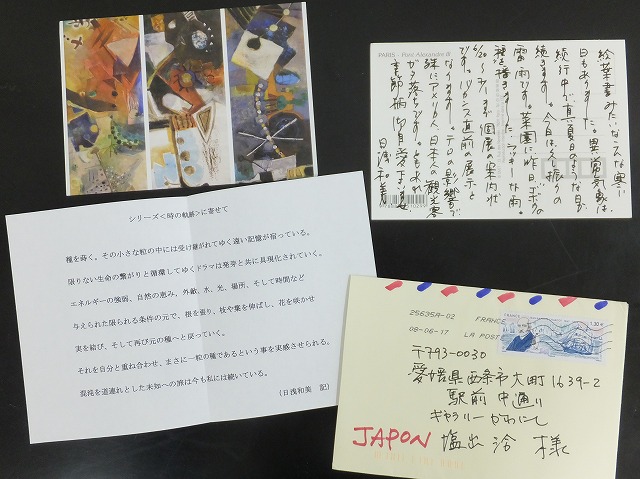 PARIS - Pont Alexandre III
絵葉書みたいな寒い
日もありました。異常気象は
続行中で真夏日のような日が
続きます。今日は久し振りの
雷雨です。菜園に昨日
種を播きました。ラッキーな雨。
6/20~ まで個展の案内状
です。バカンス直前の展示と
なります。テロの影響で
殊にアメリカ人、日本人の観光客
ガタ落ちです。ともあれ
季節柄御自愛
日浅和美
シリーズ<時の軌跡>に寄せて
種を蒔く。その小さな粒の中には受け継がれてゆく遠い記憶が宿っている。
限りない生命の繋がりと循環してゆくドラマは発芽と共に具現化されていく。
エネルギーの強弱、自然の恵み、外敵、水、光、場所、そして時間など
与えられた限られる条件の元で、根を張り、枝や葉を伸ばし、花を咲かせ
実を結び、そして再び元の種へと戻っていく。
それを自分と重ね合わせ、まさに一粒の種であるという事を実感させられる。
混沌を道連れとした未知への旅は今も私には続いている。
(日浅和美 記)
25635A-02 FRANCE
08-06-17 LA POSTE
1,30 €
〒793-0030
愛媛県西条市大町1639-2
駅前中通り
ギャラリーかわにし
JAPON 塩出 洽 様